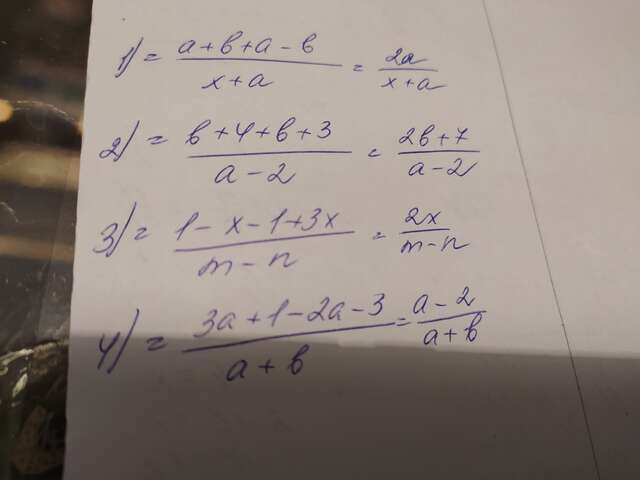 1) = (a + b + a - b)/(x + a) = 2a/(x + a)
2) = (b + 4 + b + 3)/(a - 2) = (2b + 7)/(a - 2)
3) = (1 - x - 1 + 3x)/(m - n) = 2x/(m - n)
4) = (3a + 1 - 2a - 3)/(a + b) = (a - 2)/(a + b)